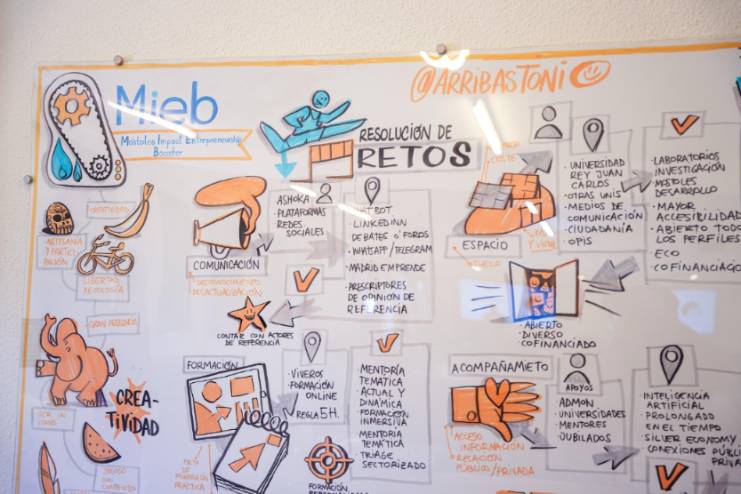 Mieb
Móstoles Impact Entrepreneurship
Booster
@ARRIBASTONI
RESOLUCIÓN DE
RETOS
CREATIVIDAD
CREA-
TIVIDAD
ASHOKA
- PLATAFORMAS
REDES
SOCIALES
LINKEDINN
DEBATES O FOROS
- WHATSAPP/TELEGRAM
- MADRID EMPRENDE
- PRESCRIPTORES
DE OPINIÓN DE
REFERENCIA
COMUNICACIÓN
CONTAR CON ACTORES
DE REFERENCIA
ESPACIO
- UNIVERSIDAD
REY JUAN
CARLOS
- OTRAS UNIS
- MEDIOS DE
COMUNICACIÓN
- CIUDADANÍA
- OPIS
- LABORATORIOS
INVESTIGACIÓN
MOSTOLES
DESARROLLO
- MAYOR
ACCESIBILIDAD
- ABIERTO TODO
LOS PERFILES
- ECO
COFINANCIADO
- ABIERTO
- DIVERSO
COFINANCIADO
FORMACIÓN
- VIVEROS
- FORMACIÓN
ONLINE
- REGLA 5H.
- MENTORÍA
TEMÁTICA
- ACTUAL Y
DINÁMICA
- FORMACIÓN
INMERSIVA
- MENTORÍA
TEMÁTICA
- TRIAGE
SECTORIZADO
FORMACIÓN
ACOMPAÑAMIETO
ACCESO
INFORMACIÓN
- RELACIÓN
PÚBLICO/PRIVADA
APOYOS
- ADMON
- UNIVERSIDADES
- MENTORES
- JUBILADOS
- INTELIGENCIA
ARTIFICIAL
- PROLONGADO
EN EL TIEMPO
- SILVER ECONOMY
- CONEXIONES PÚBLI
PRIVA